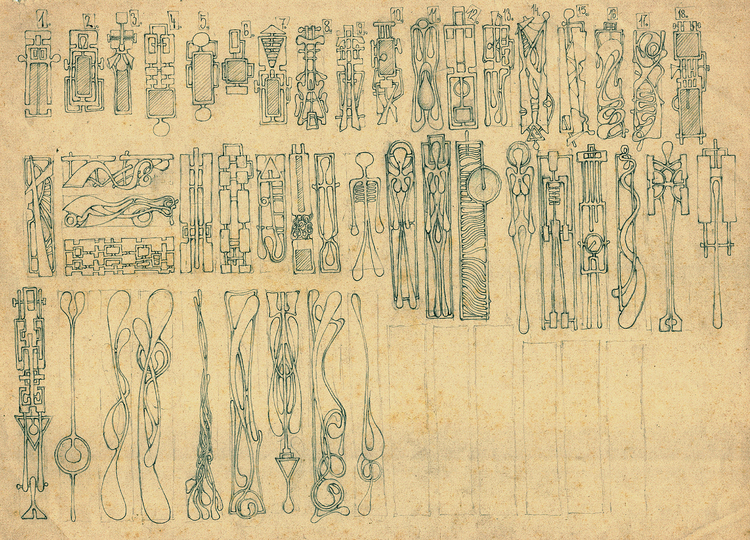 1. 2. 3. 4. 5. 6. 7. 8. 9. 10. 11. 12. 13. 14. 15. 16. 17. 18.